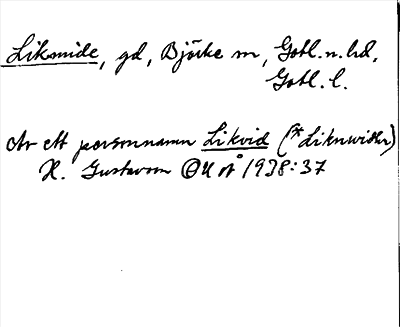 Likmide, gd, Björke sn, Gotl. n. hd,
Gotl. l.
Av ett personnamn Likvid (*Liknwiðr)
H. Gustavson OUÅ 1938:37